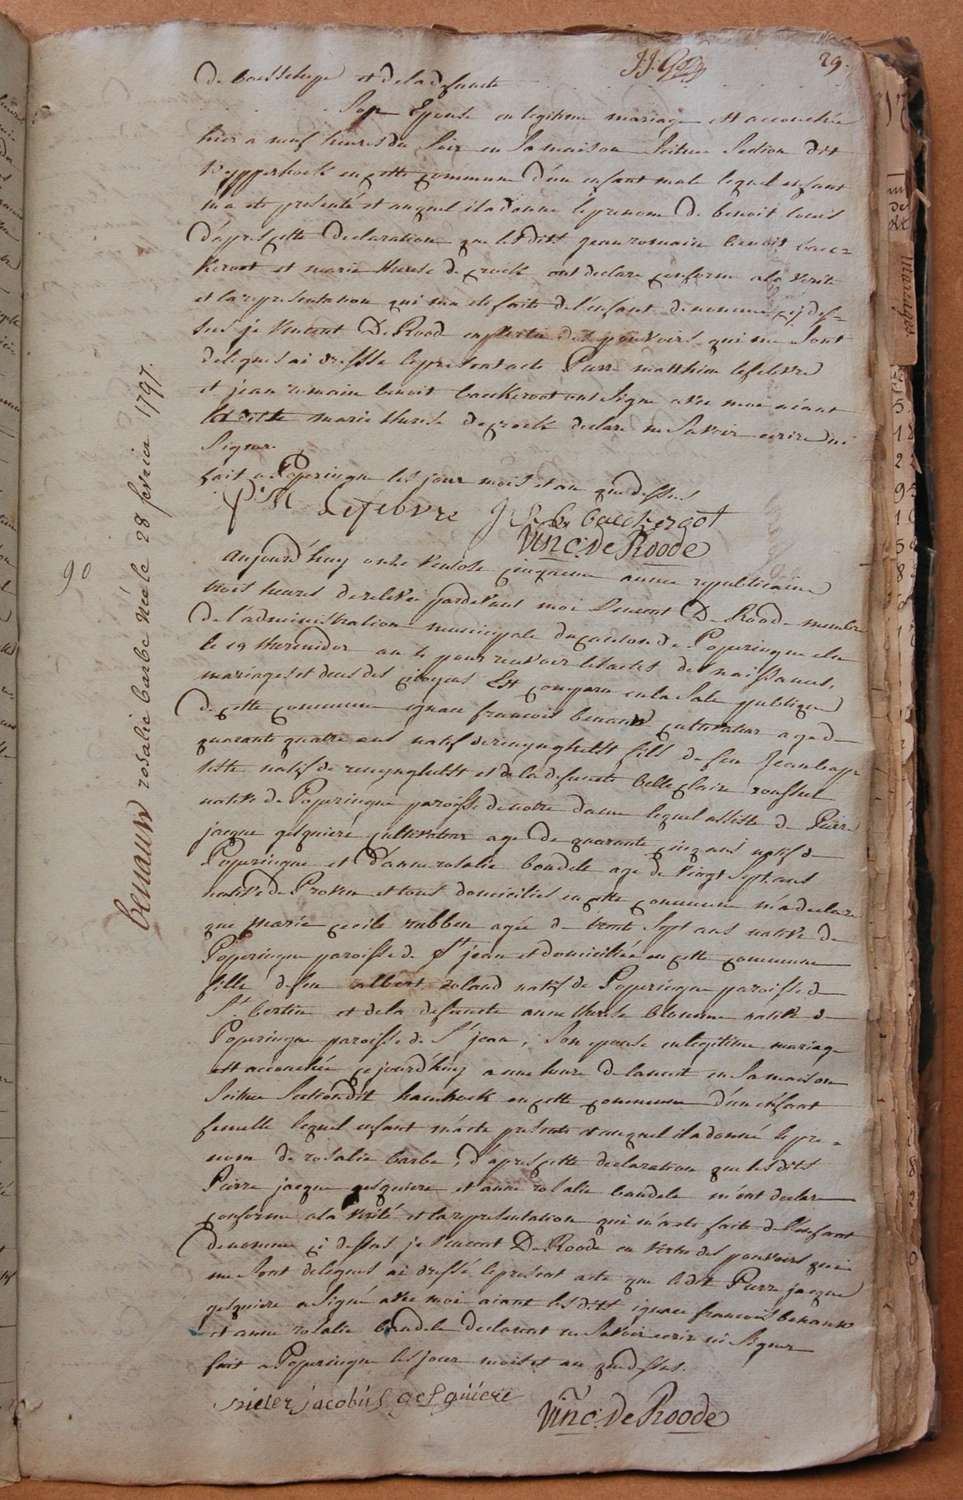 29.
de boesschepe et de la defuncte
Son Epouse en legitime mariage est accouchée
hier a neuf heures du Soir en Sa maison Scitue Section dit
en cette commune d'un enfant male lequel enfant
m'a ete presenté et auquel il a donne le prenom de benoit louis
d'apres cette declaration que lesdits jean romain benoit baec-
keroot et marie therese de crock ont declare conforme a la verite
et la representation qui ma ete faite de l'enfant denomme cy des-
sus je Vincent De Roode en vertu des pouvoirs qui me sont
delegues ai dresse le present acte Pierre matthieu lefebvre
et jean romain benoit baeckeroot ont Signe avec moi aiant
ladite marie therese de crock declare ne Savoir ecrire ni
Signer
fait a Poperingue les jour mois et an que dessus
P. M. Lefebvre J. R. b. baeckeroot
Vinc. De Roode
90
benauw rosalie barbe née le 28 fevrier 1797.
Aujourd'huy onze Ventose cinquieme annee republicaine
trois heures de relevée pardevant moi Vincent De Roode membre
de l'administration municipale du canton de Poperingue elu
le 19 thermidor an 4 pour recevoir les actes de naissances,
mariages et deces des citoyens Est comparu en la Sale publique
de cette commune ignace francois benauw cultivateur age de
quarante quatre ans natif de reninghelst fils de feu Jean bap-
tiste natif de reninghelst et de la defuncte belle claire
native de Poperingue paroisse de notre dame lequel assiste de Pierre
jacque gesquiere cultivateur age de quarante cinq ans natif de
Poperingue et d'anne rosalie baudele age de Vingt Sept ans
native de Proven et tous domiciliés en cette commune m'a declare
que marie cecile rubben agée de trente Sept ans native de
Poperingue paroisse de St jean et domiciliée en cette commune
fille de feu albert roland natif de Poperingue paroisse de
St bertin et de la defuncte anne therese blomme native de
Poperingue paroisse de St jean, Son epouse en legitime mariage
est accouchée ce jourd'huy a une heure de la nuit en Sa maison
Scitue Section dit hamhoek en cette commune d'un enfant
femelle lequel enfant m'a ete presente et auquel il a donné le pre-
nom de rosalie barbe, d'apres cette declaration que lesdits
Pierre jacque gesquiere et anne rosalie baudele m'ont declare
conforme a la verité et la representation qui m'a ete faite de l'enfant
denomme ci dessus je Vincent De Roode en vertu des pouvoirs qui
me sont delegues ai dressé le present acte que ledit Pierre jacque
gesquiere a Signé avec moi aiant lesdits ignace francois benauw
et anne rosalie baudele declarant ne Savoir ecrire ni Signer
fait a Poperingue les jour mois et an que dessus.
pieter jacobus gesquiere
Vinc. De Roode